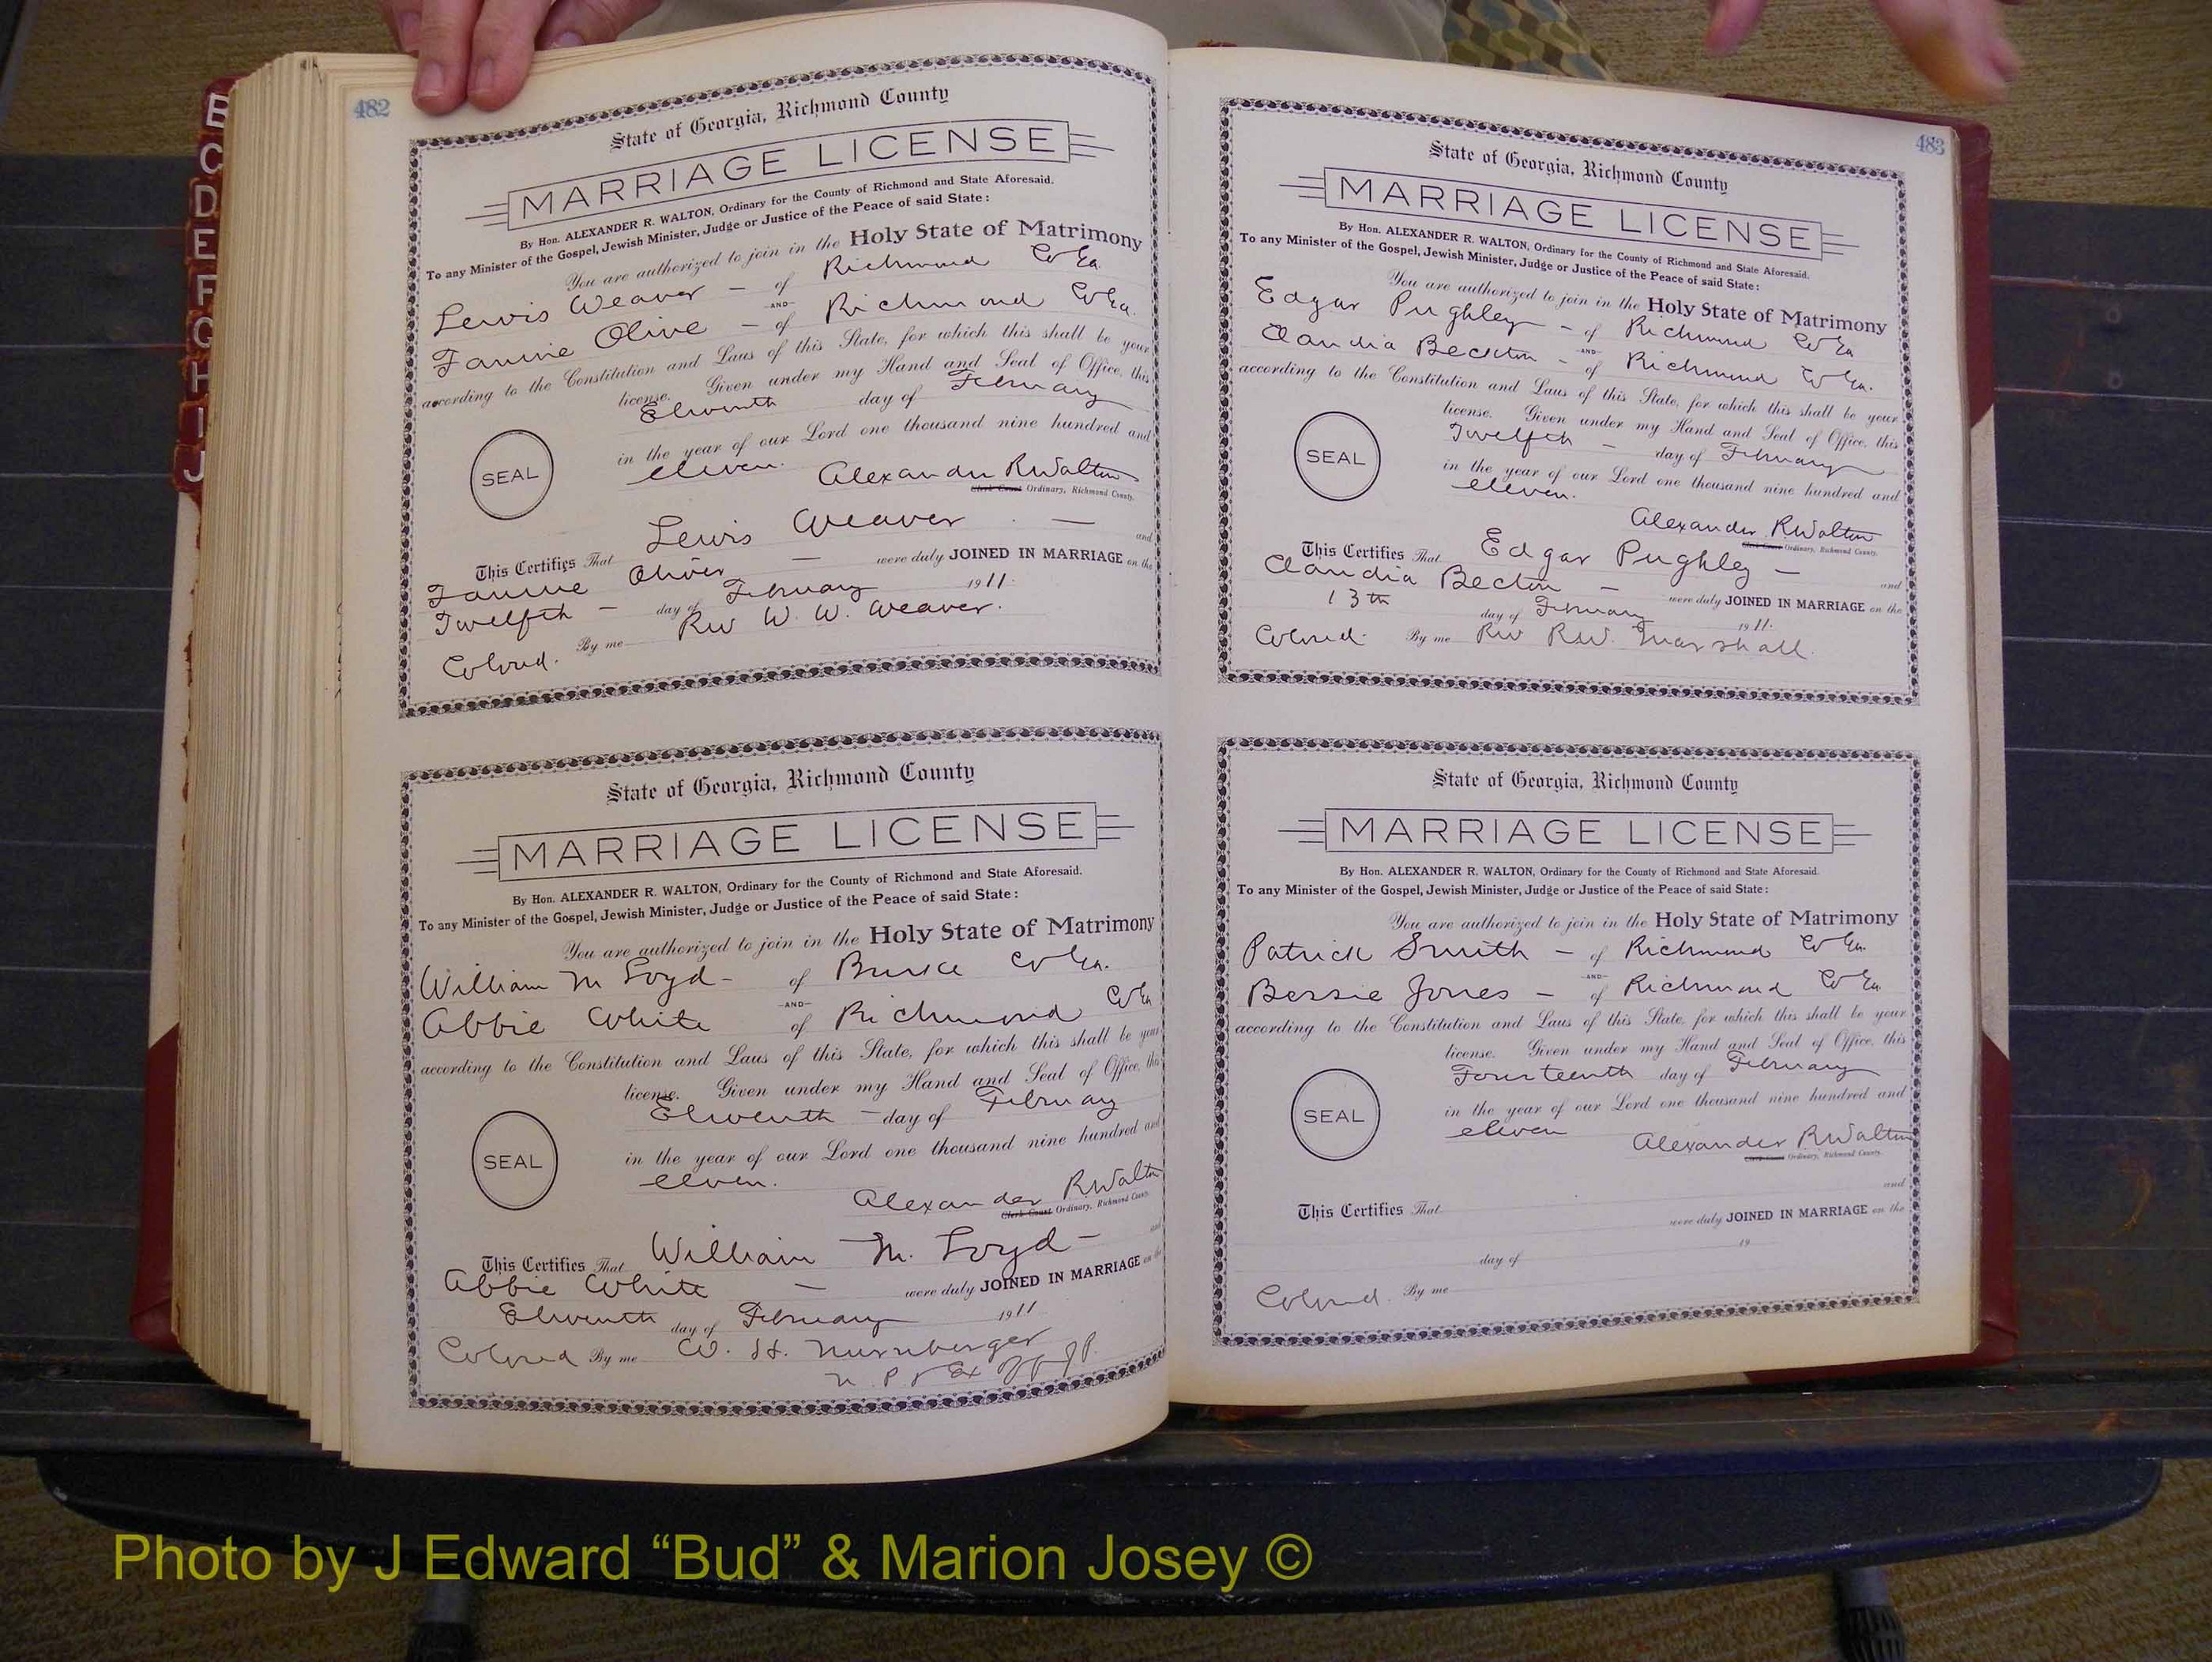 B
C
D
E
F
G
H
I
J
482
State of Georgia, Richmond County
MARRIAGE LICENSE
By Hon. ALEXANDER R. WALTON, Ordinary for the County of Richmond and State Aforesaid.
To any Minister of the Gospel, Jewish Minister, Judge or Justice of the Peace of said State:
You are authorized to join in the Holy State of Matrimony
Lewis Weaver - of Richmond Co Ga.
-AND-
Fannie Olive - of Richmond Co Ga.
according to the Constitution and Laws of this State, for which this shall be your
license. Given under my Hand and Seal of Office, this
Eleventh day of February
in the year of our Lord one thousand nine hundred and
SEAL
eleven. Alexander R Walton
Clerk Court Ordinary, Richmond County.
This Certifies That Lewis Weaver - and
Fannie Oliver - were duly JOINED IN MARRIAGE on the
Twelfth - day of February 1911.
Colored. By me Rev W. W. Weaver.
State of Georgia, Richmond County
MARRIAGE LICENSE
By Hon. ALEXANDER R. WALTON, Ordinary for the County of Richmond and State Aforesaid.
To any Minister of the Gospel, Jewish Minister, Judge or Justice of the Peace of said State:
You are authorized to join in the Holy State of Matrimony
William M Loyd - of Burke Co Ga.
-AND-
Abbie White of Richmond Co Ga
according to the Constitution and Laws of this State, for which this shall be your
license. Given under my Hand and Seal of Office, this
Eleventh - day of February
in the year of our Lord one thousand nine hundred and
SEAL
eleven.
Alexander R. Walton
Clerk Court Ordinary, Richmond County.
This Certifies That William M. Loyd - and
Abbie White - were duly JOINED IN MARRIAGE on the
Eleventh day of February 1911
Colored By me W. H. Nurnberger
N. P. & Ex Off J P.
483
State of Georgia, Richmond County
MARRIAGE LICENSE
By Hon. ALEXANDER R. WALTON, Ordinary for the County of Richmond and State Aforesaid.
To any Minister of the Gospel, Jewish Minister, Judge or Justice of the Peace of said State:
You are authorized to join in the Holy State of Matrimony
Edgar Pughley - of Richmond Co Ga
-AND-
Claudia Beckton - of Richmond Co Ga.
according to the Constitution and Laws of this State, for which this shall be your
license. Given under my Hand and Seal of Office, this
Twelfth - day of February
SEAL
in the year of our Lord one thousand nine hundred and
eleven.
Alexander R Walton
Clerk Court Ordinary, Richmond County.
This Certifies That Edgar Pughley - and
Claudia Becton - were duly JOINED IN MARRIAGE on the
13th day of February 1911.
Colored. By me Rev R.W. Marshall.
State of Georgia, Richmond County
MARRIAGE LICENSE
By Hon. ALEXANDER R. WALTON, Ordinary for the County of Richmond and State Aforesaid.
To any Minister of the Gospel, Jewish Minister, Judge or Justice of the Peace of said State:
You are authorized to join in the Holy State of Matrimony
Patrick Smith - of Richmond Co Ga.
-AND-
Bessie Jones - of Richmond Co Ga.
according to the Constitution and Laws of this State, for which this shall be your
license. Given under my Hand and Seal of Office, this
Fourteenth day of February
in the year of our Lord one thousand nine hundred and
SEAL
eleven Alexander R Walton
Clerk Court Ordinary, Richmond County.
This Certifies That and
were duly JOINED IN MARRIAGE on the
day of 19
Colored. By me
Photo by J Edward “Bud” & Marion Josey ©